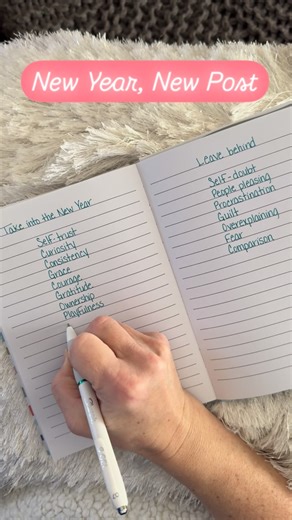 New Year, New Post
Take into the New Year
Self-trust
Curiosity
Consistency
Grace
Courage
Gratitude
Ownership
Playfulness
Leave behind
Self-doubt
People pleasing
Procrastination
Guilt
Overexplaining
Fear
Comparison